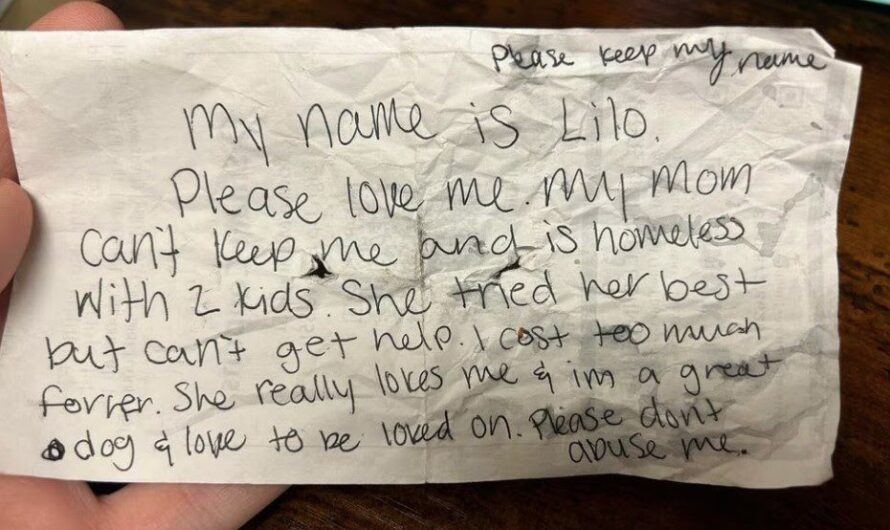 Please keep my name
My name is Lilo.
Please love me. My Mom
can't keep me and is homeless
with 2 kids. She tried her best
but can't get help. I cost too much
for her. She really loves me & im a great
dog & love to be loved on. Please dont
abuse me.